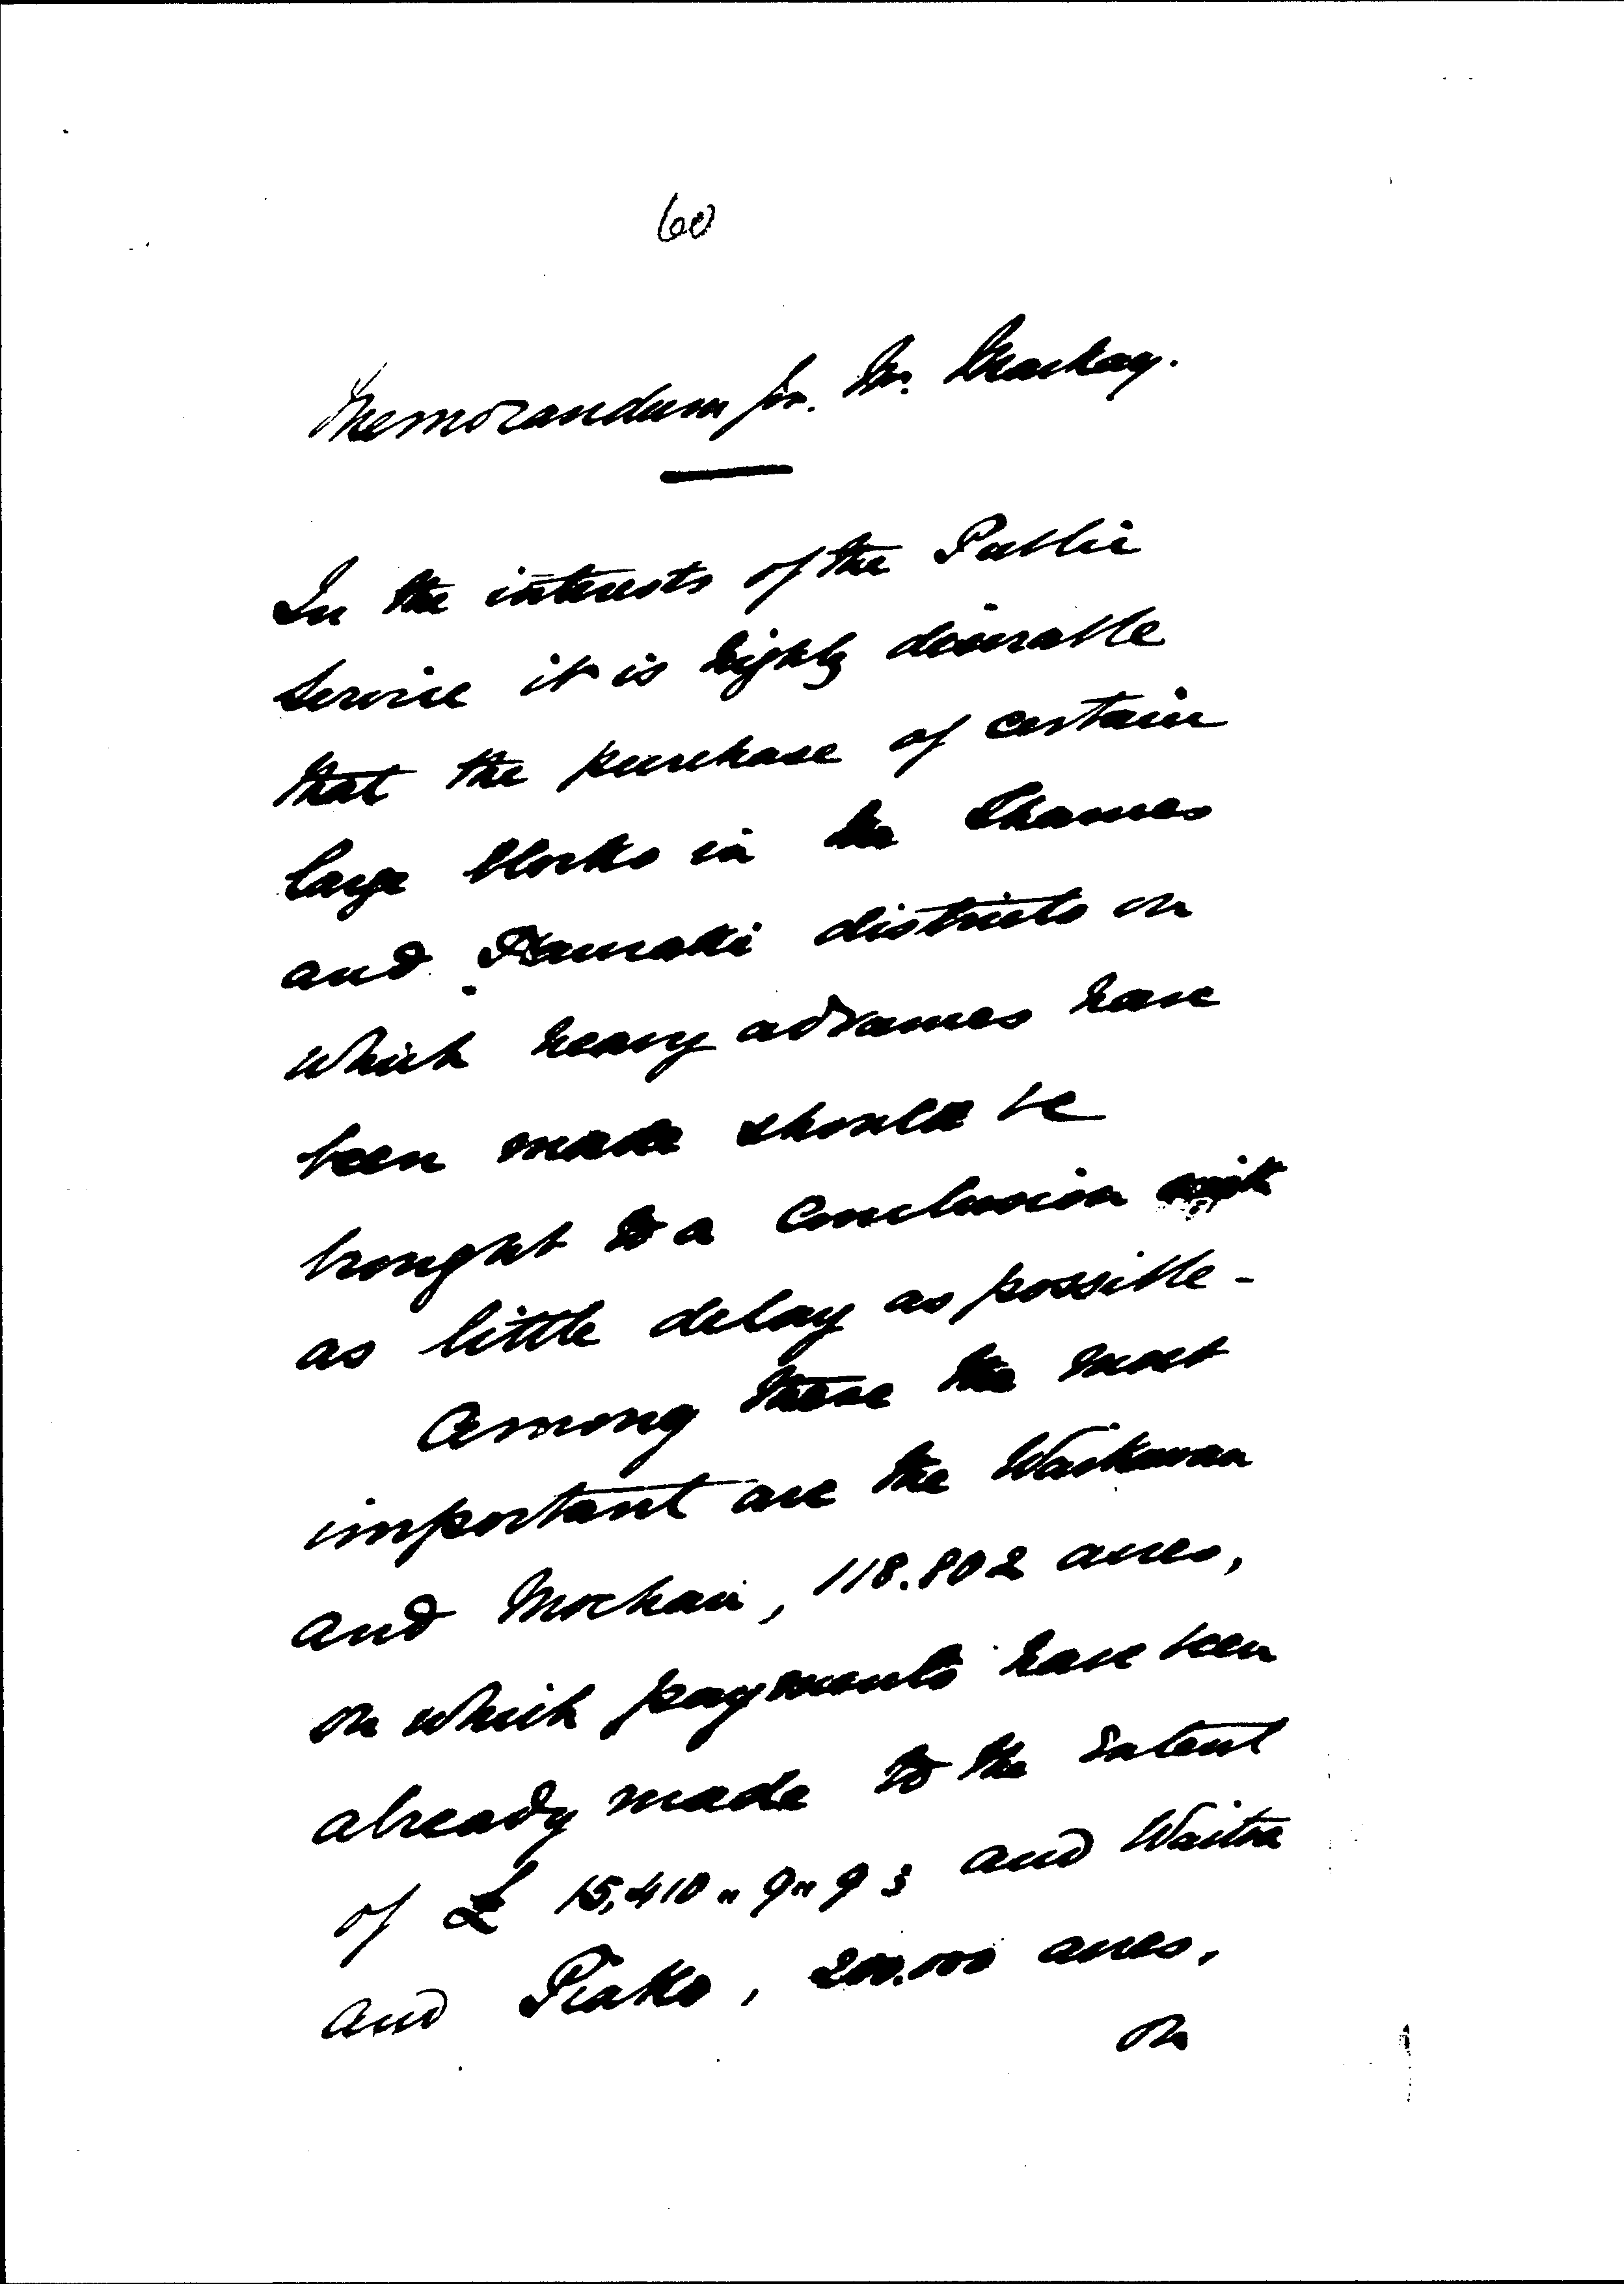 60
Memorandum for. Mr. Mackay.
In the interests of the Public
Service it is highly desirable
that the purchase of certain
large blocks in the Thames
and Hauraki districts on
which heavy advances have
been made should be
brought to a conclusion with
as little delay as possible -
Among these the most
important are the Waikawau
and Moehau, 118.802 acres,
on which payments have been
already made to the extent
of £ 15,410 " 9 " 9 ; and Waitoa
and Piako, 200.000 acres,
on